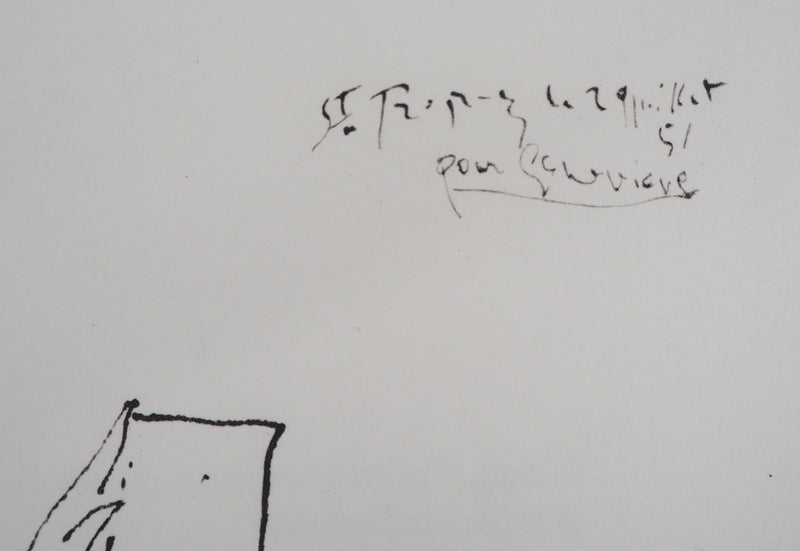 St. Tropez le 29 juillet
51
pour Geneviève